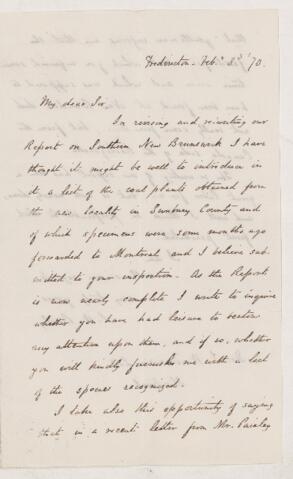 Fredericton - Feb. 3rd '70.
My dear Sir,
In revising and re-writing our
Report on Southern New Brunswick I have
thought it might be well to introduce in
it a list of the coal plants obtained from
the new locality in Sunbury County and
of which specimens were some months ago
forwarded to Montreal and I believe sub-
mitted to your inspection. As the Report
is now nearly complete I write to inquire
whether you have had leisure to bestow
any attention upon them, and if so, whether
you will kindly furnish me with a list
of the species recognized.
I take also this opportunity of saying
that in a recent letter from Mr. Paisley